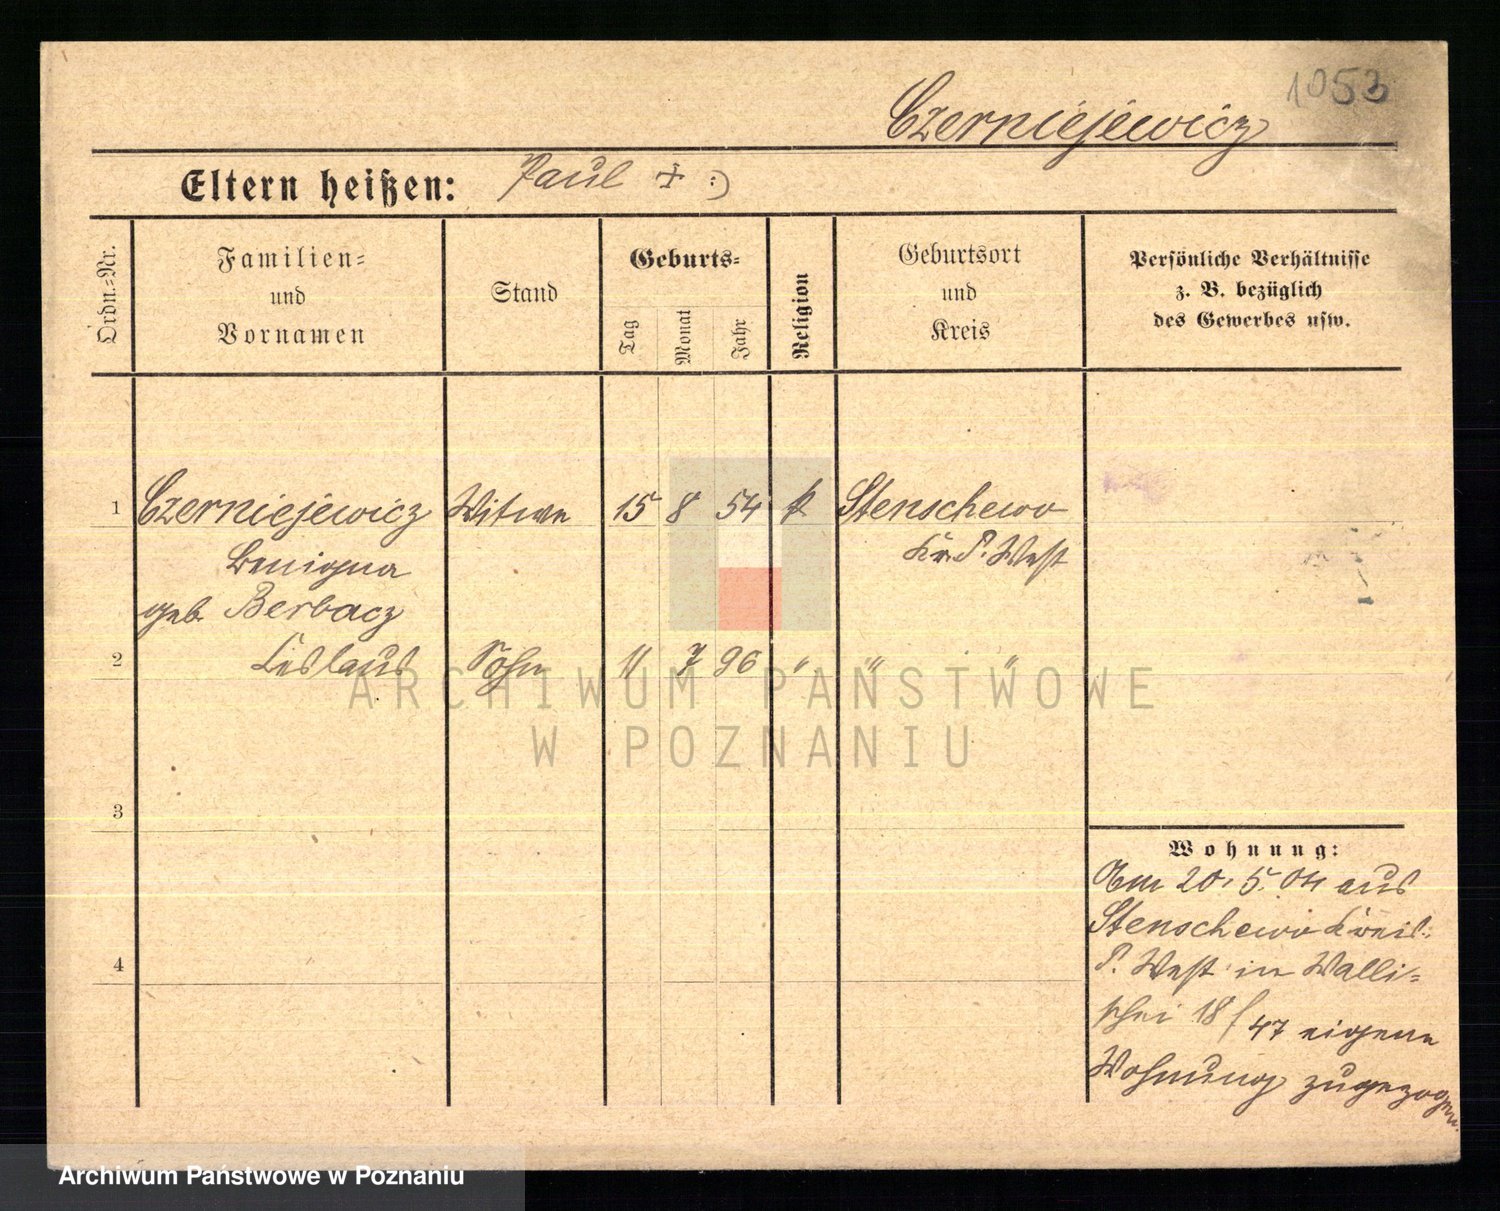 1053
Czerniejewicz
Eltern heißen: Paul + :)
Ordn.-Nr.
Familien-
und
Vornamen
Stand
Geburts-
Tag
Monat
Jahr
Religion
Geburtsort
und
Kreis
Persönliche Verhältnisse
z. B. bezüglich
des Gewerbes usw.
1 Czerniejewicz Witwe 15 8 54 k Stenschewo
Benigna Kr. P. West
geb. Berbacz
2 Ceslaus Sohn 11 7 96 " " "
ARCHIWUM PAŃSTWOWE
W POZNANIU
3
4
Wohnung:
Am 20. 5. 04 aus
Stenschewo Kreis
P. West in Walli-
schei 18/47 eigene
Wohnung zugezogen.
Archiwum Państwowe w Poznaniu